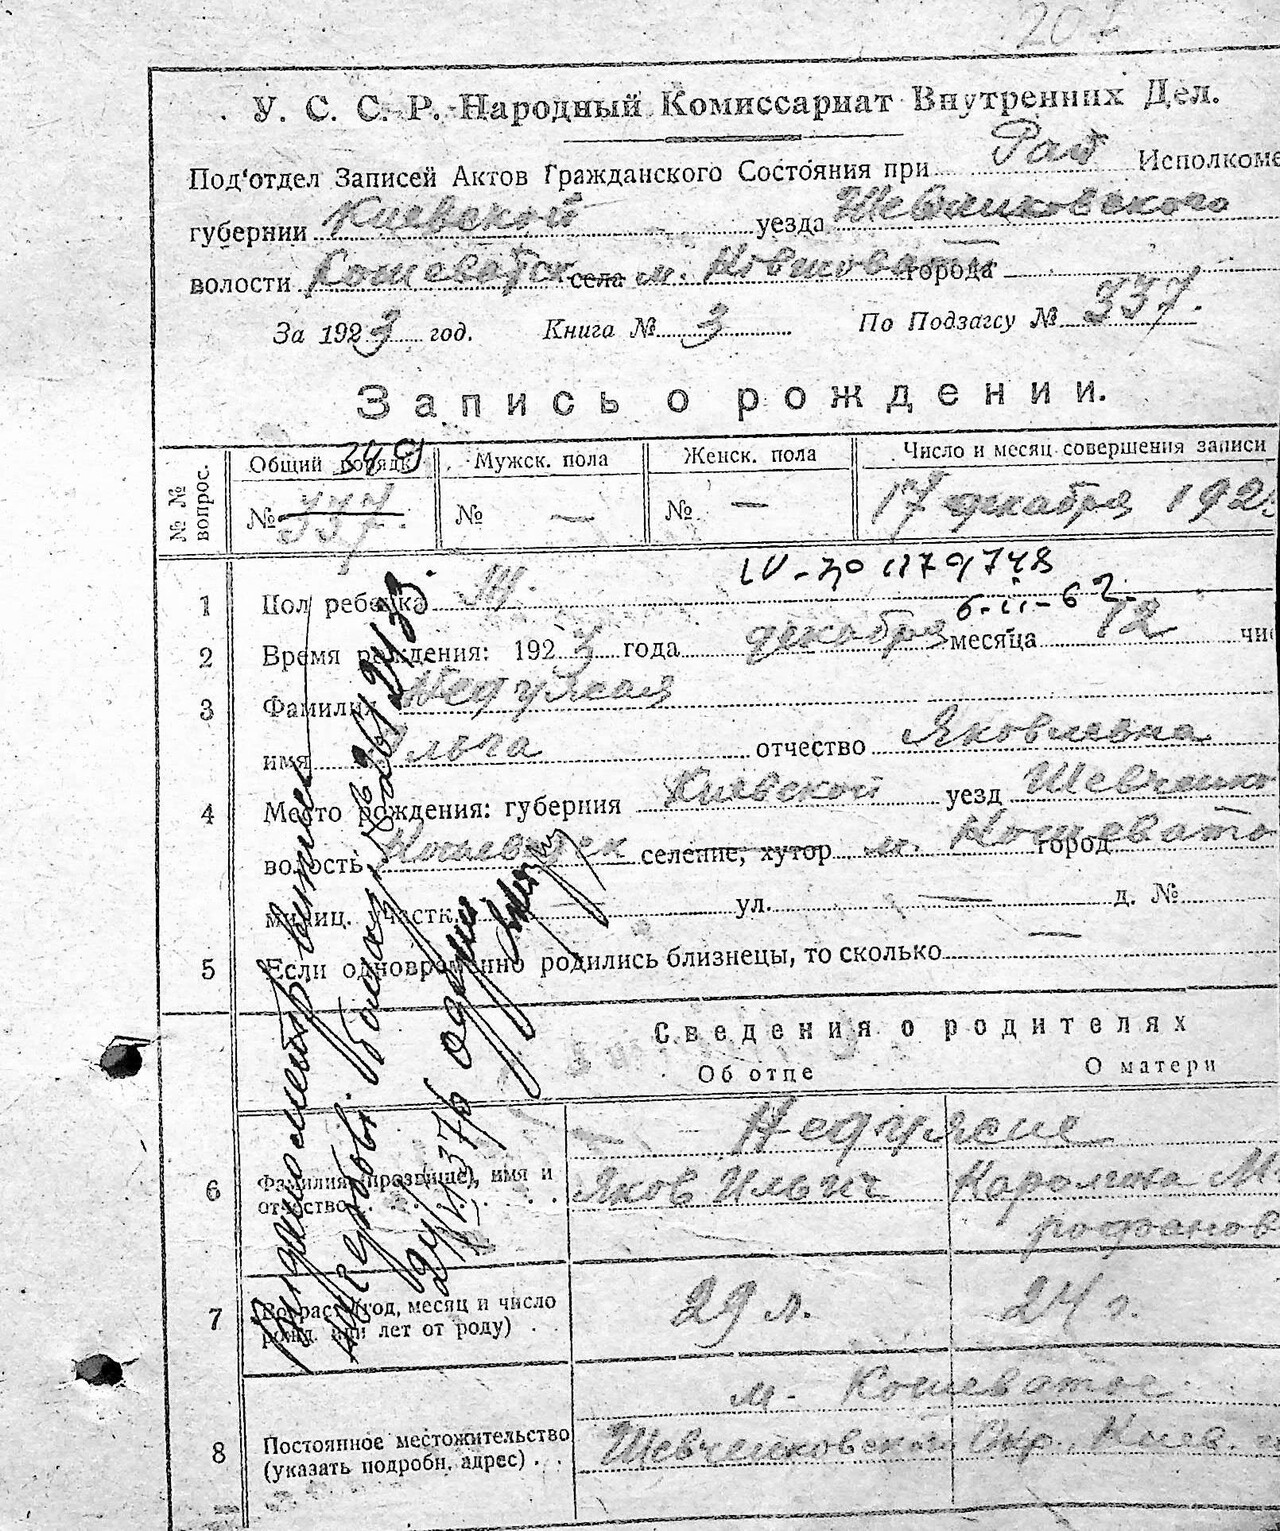 207
У. С. С. Р. Народный Комиссариат Внутренних Дел.
Под'отдел Записей Актов Гражданского Состояния при Рай Исполкоме
губернии Киевской уезда Шевченковского
волости Кошеватск села м. города
За 1923 год. Книга № 3 По Подзагсу № 337.
Запись о рождении.
№ № вопрос. Общий порядк Мужск. пола Женск. пола Число и месяц совершения записи
349
№ 337. № — № — 17 декабря 192
IV-
1 Пол ребенка Ж.
6-II-62
2 Время рождения: 1923 года декабря месяца 12 чи
3 Фамилия Недуяская
имя Ольга отчество Яковлевна
4 Место рождения: губерния Киевской уезд Шевченко
волость Кошеватск селение, хутор м. Кошевато город
милиц. участк. — ул. — д. №
5 Если одновременно родились близнецы, то сколько —
Сведения о родителях
Об отце О матери
Недуяские
6 Фамилия (прозвище), имя и Яков Ильич Каролина М
отчество . . . рофанов
7 Возраст (год, месяц и число 29 л. 24 г.
рожд. или лет от роду) . .
м. Кошеватое
8 Постоянное местожительство Шевченковского Окр., Киев.
(указать подробн. адрес) . . .